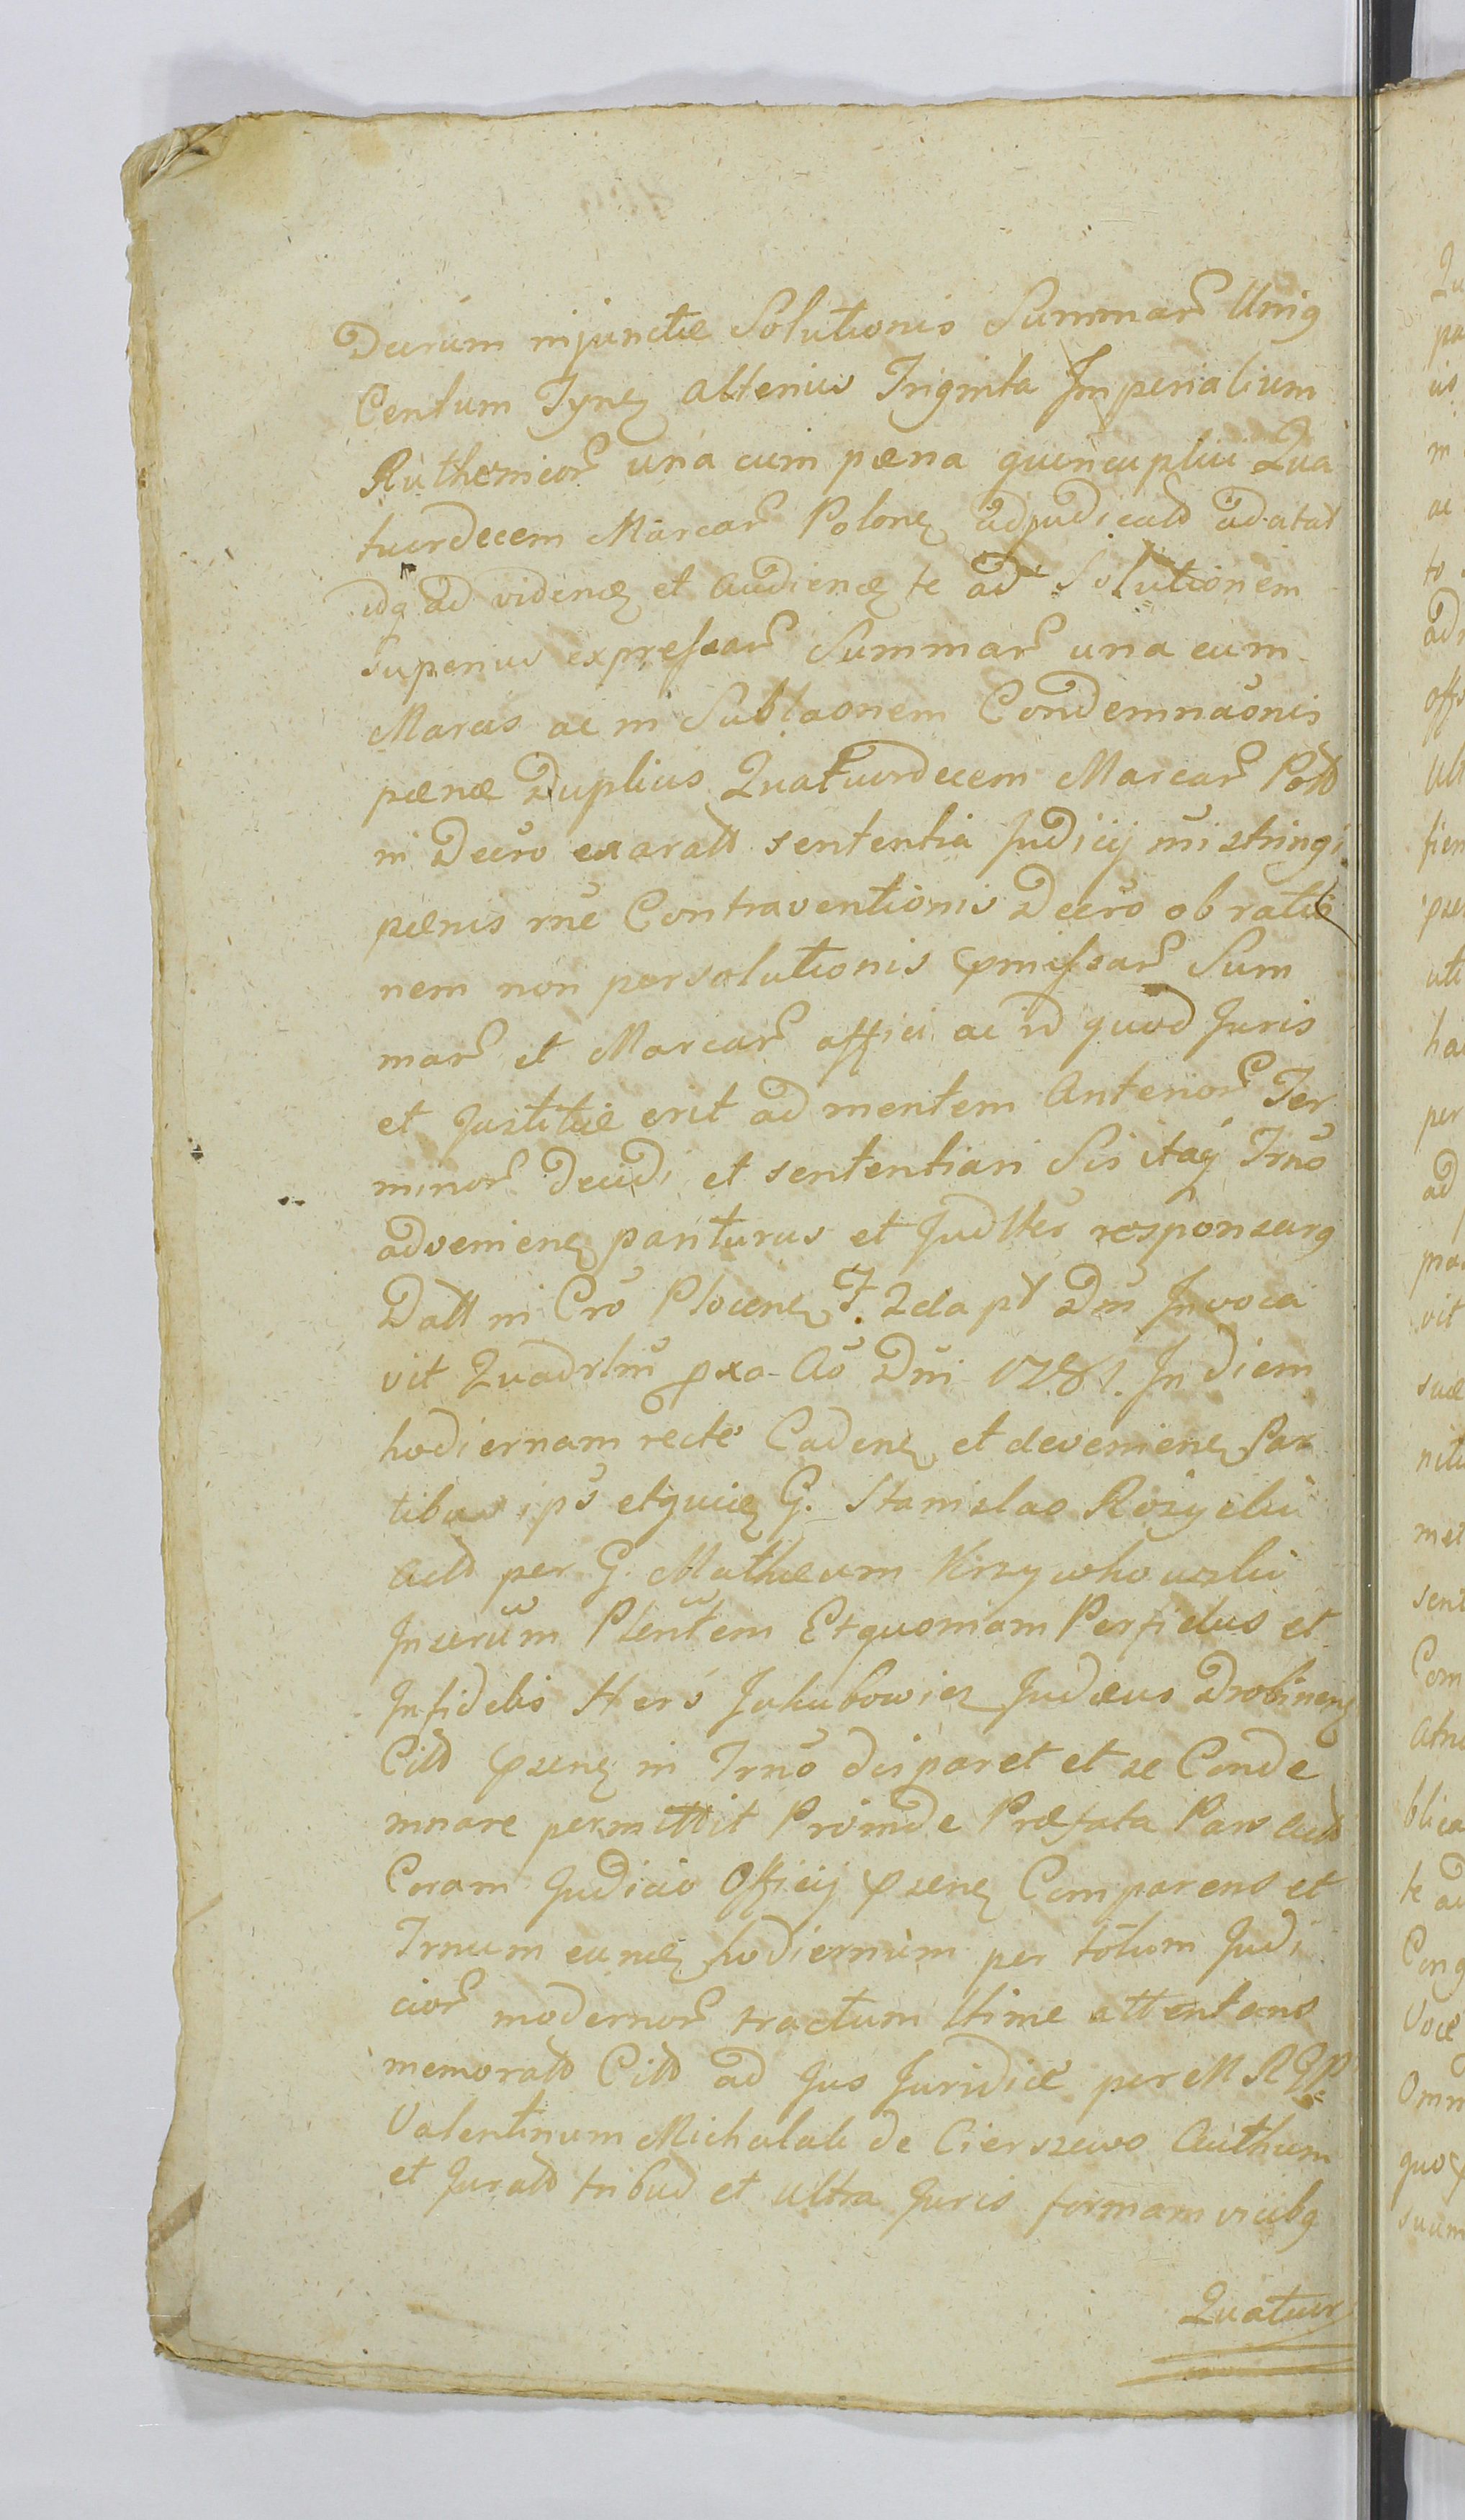 Decrum injunctæ Solutionis Summar Uniq
Centum Tynf alterius Triginta Imperialium
Ruthenicor una cum pœna quincuplici Qua
tuordecem Marcar Polon adjudicatt adatat
idq ad videnđ et audienđ te ad Solutionem
superius expressar Summar una cum
Marcis ac in Sublaonem Condemnaonis
pœnæ Duplicis Quatuordecem Marcar Poltt
in Decro exaratt sententia Judicij nri stringi
pœnis rne Contraventionis Decro ob ratio
nem non persolutionis pmissar Sum
mar et Marcar affici ac id quod Juris
et Justitiæ erit ad mentem Anterior Ter
minor decidi et sententiari Sis itaq Trno
advenien pariturus et Judlter responsurq
Datt in Cro Plocen F. 2da pt Dni Invoca
vit Quadrlm pxa Ao Dni 1781. In diem
hodiernam recte Caden et devenien Par
tibus ips etquie G. Stanislao Rozycki
actt per G. Mathæum Krzywkowski
Inserum Plentem Etquoniam Perfidus et
Infidelis Herś Jakubowicz Judæus Drobinen
Citt psen in Trno discparet et se Conde
mnare permittit Proinde Præfata Pars actt
Coram Judicio Officij psen Comparens et
Trnum eund hodiernum per totum Judi
cior modernor tractum ltime attentans
memoratt Citt ad Jus Juridice per M RGP
Valentinum Michalak de Cierszewo Authum
et Juratt tribus et ultra Juris formam vicibq
Quatuor